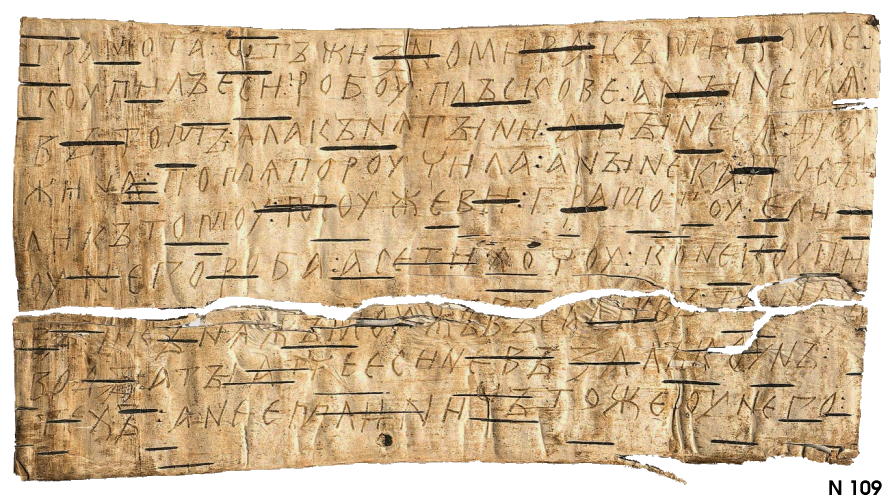 грамота : ѡтъ жизномира : къ микоуле :
коупилъ еси : робоу : плъскове : а нꙑне мѧ :
въ томъ : ѧла кънѧгꙑни : а нꙑне сѧ дроу
жина : по мѧ пороучила : а нꙑне ка : посъ
ли къ томоу : моужеви : грамотоу : е ли
оу него роба : а се ти хочоу : коне коупи
въ : и кънѧжъ моужъ въсадивъ : та на съ
водꙑ : а тꙑ атче еси не възалъ коунъ :
техъ : а не емли : ничъто же оу него :
N 109